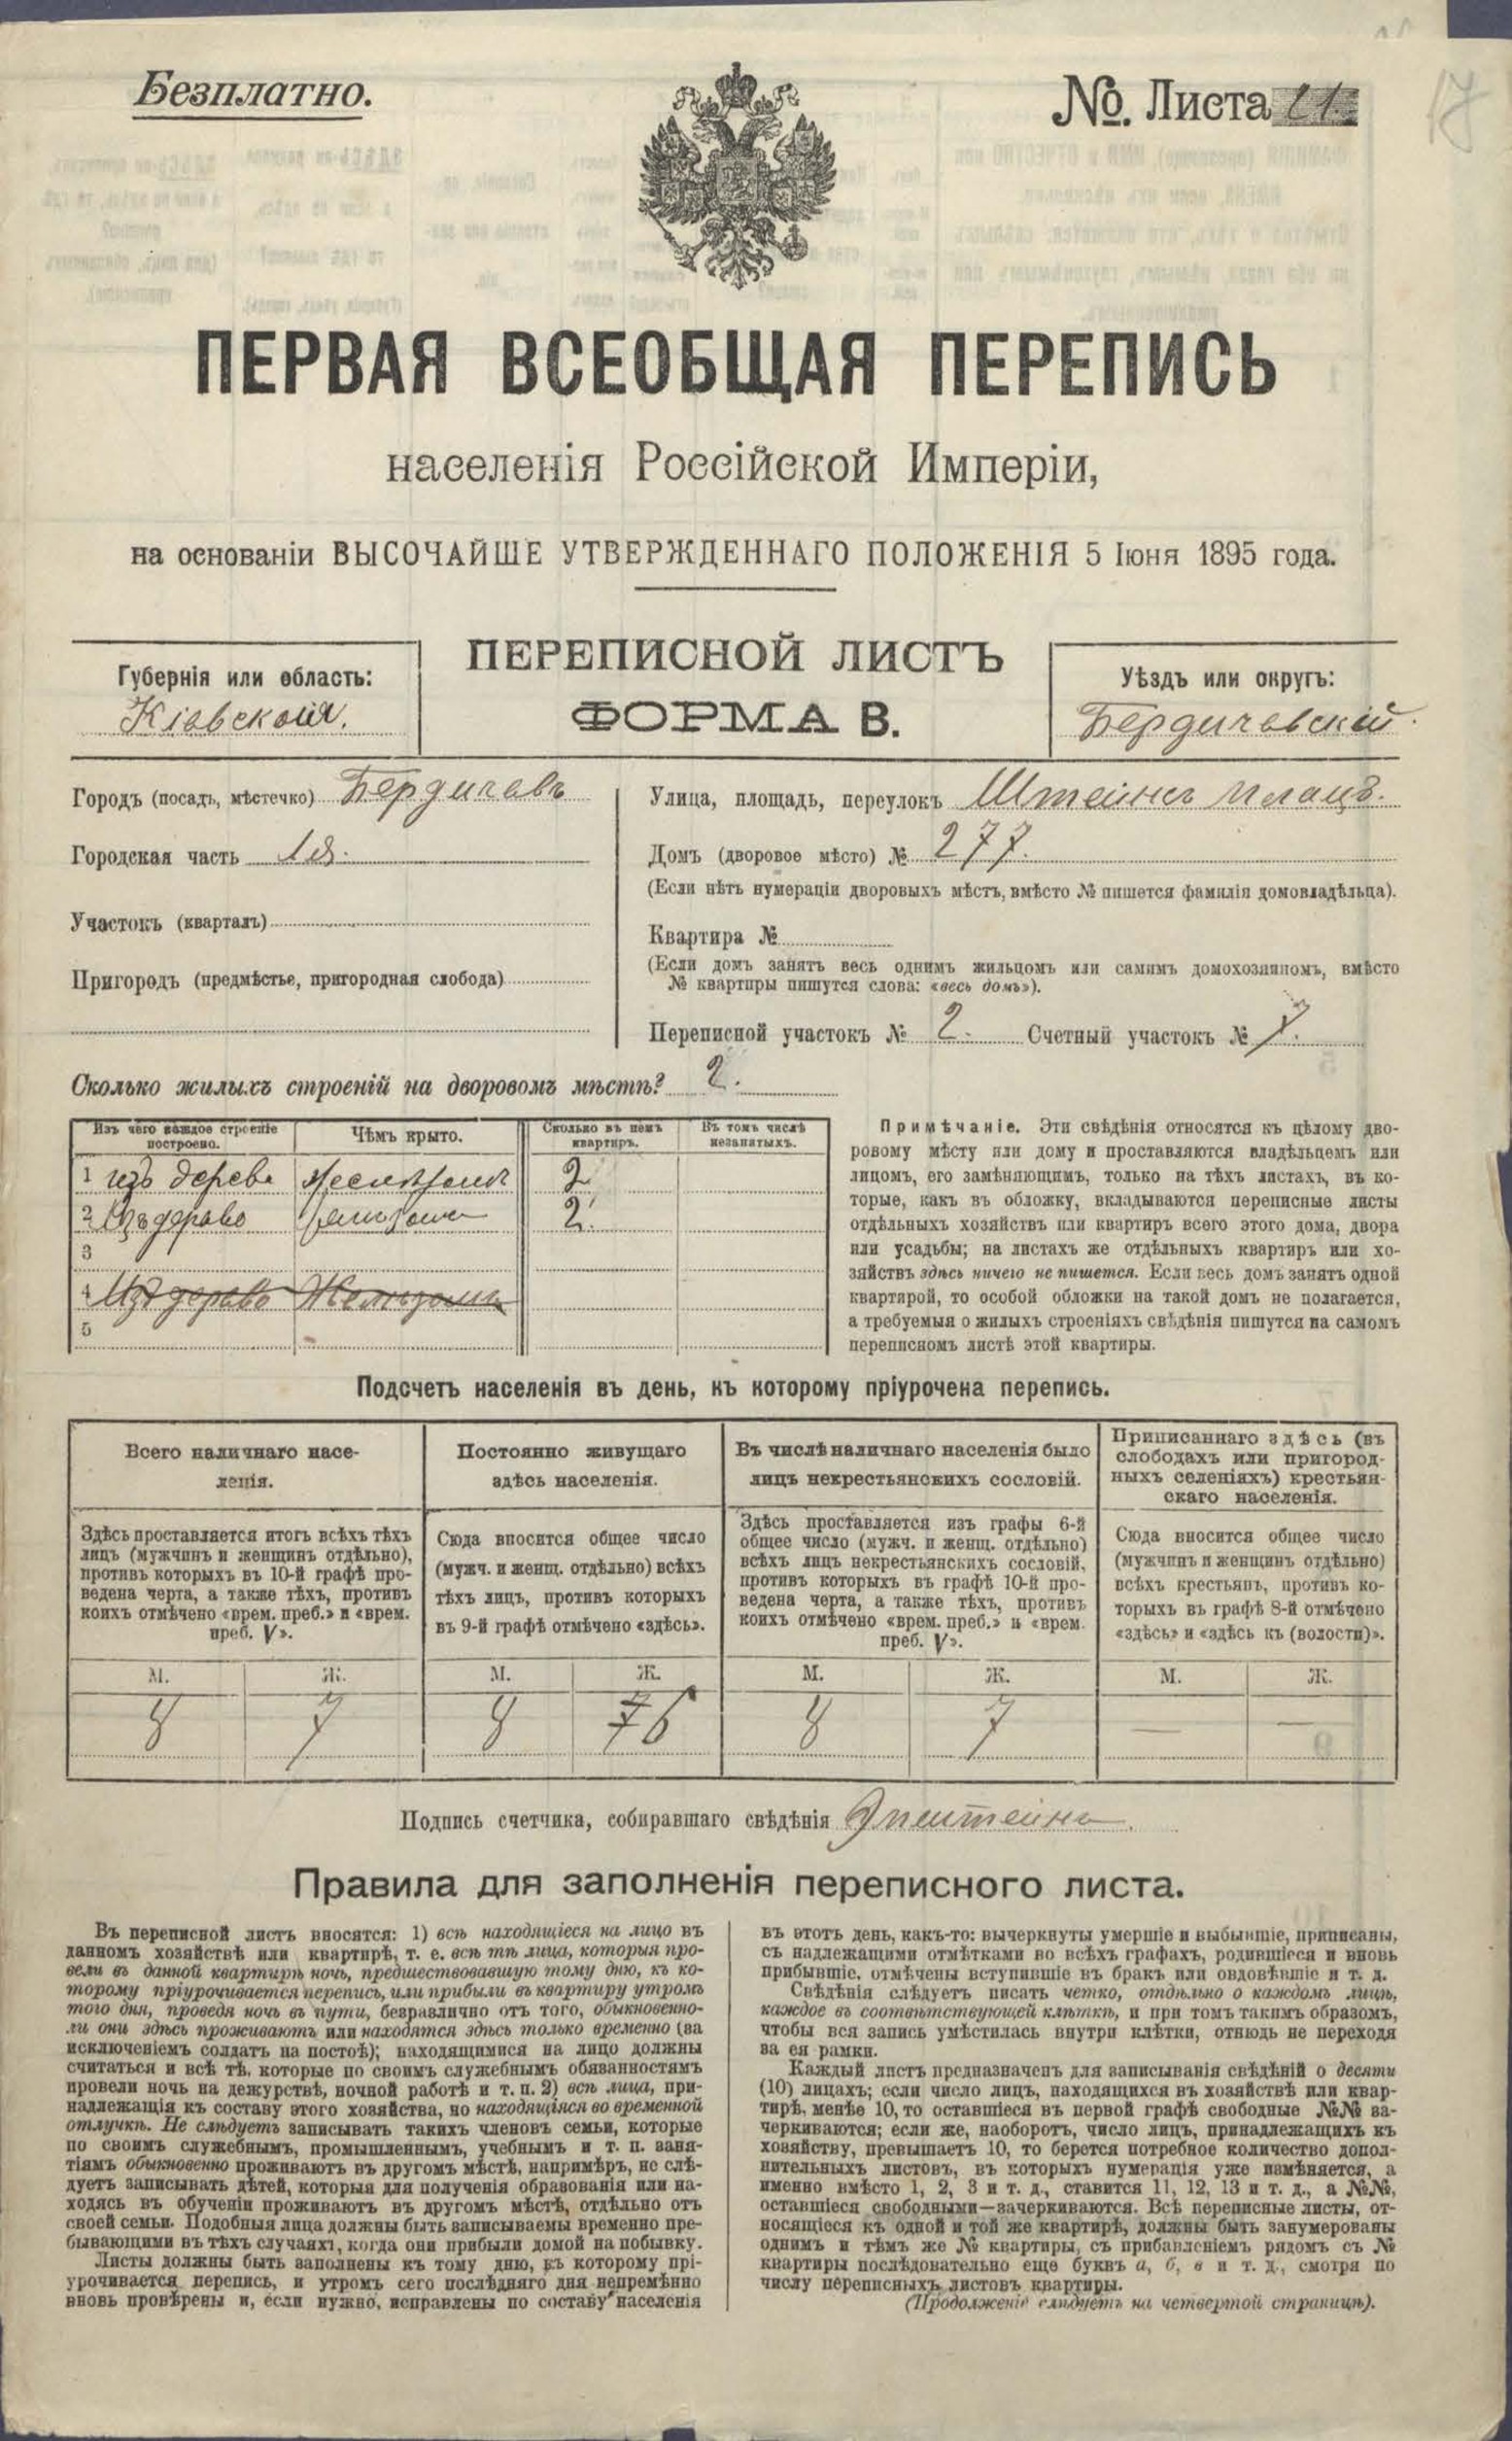 Безплатно.
№. Листа 21
17
ПЕРВАЯ ВСЕОБЩАЯ ПЕРЕПИСЬ
населенія Россійской Имперіи,
на основаніи ВЫСОЧАЙШЕ УТВЕРЖДЕННАГО ПОЛОЖЕНІЯ 5 Іюня 1895 года.
Губернія или область:
Кіевская.
ПЕРЕПИСНОЙ ЛИСТЪ
ФОРМА В.
Уѣздъ или округъ:
Бердичевскій.
Городъ (посадъ, мѣстечко) Бердичевъ
Городская часть 1я.
Участокъ (кварталъ)
Пригородъ (предмѣстье, пригородная слобода)
Улица, площадь, переулокъ Штейнъ плацъ.
Домъ (дворовое мѣсто) № 277.
(Если нѣтъ нумераціи дворовыхъ мѣстъ, вмѣсто № пишется фамилія домовладѣльца).
Квартира №
(Если домъ занятъ весь однимъ жильцомъ или самимъ домохозяиномъ, вмѣсто
№ квартиры пишутся слова: «весь домъ»).
Переписной участокъ № 2. Счетный участокъ № 7.
Сколько жилыхъ строеній на дворовомъ мѣстѣ? 2.
Изъ чего каждое строеніе
построено.
Чѣмъ крыто.
Сколько въ немъ
квартиръ.
Въ томъ числѣ
незанятыхъ.
1 изъ дерева 2
2 Изъ дерева 2.
3
4 Изъ дерева Желѣзомъ
5
Примѣчаніе. Эти свѣдѣнія относятся къ цѣлому дво-
ровому мѣсту или дому и проставляются владѣльцемъ или
лицомъ, его замѣняющимъ, только на тѣхъ листахъ, въ ко-
торые, какъ въ обложку, вкладываются переписные листы
отдѣльныхъ хозяйствъ или квартиръ всего этого дома, двора
или усадьбы; на листахъ же отдѣльныхъ квартиръ или хо-
зяйствъ здѣсь ничего не пишется. Если весь домъ занятъ одной
квартирой, то особой обложки на такой домъ не полагается,
а требуемыя о жилыхъ строеніяхъ свѣдѣнія пишутся на самомъ
переписномъ листѣ этой квартиры.
Подсчетъ населенія въ день, къ которому пріурочена перепись.
Всего наличнаго насе-
ленія.
Постоянно живущаго
здѣсь населенія.
Въ числѣ наличнаго населенія было
лицъ некрестьянскихъ сословій.
Приписаннаго здѣсь (въ
слободахъ или пригород-
ныхъ селеніяхъ) крестьян-
скаго населенія.
Здѣсь проставляется итогъ всѣхъ тѣхъ
лицъ (мужчинъ и женщинъ отдѣльно),
противъ которыхъ въ 10-й графѣ про-
ведена черта, а также тѣхъ, противъ
коихъ отмѣчено «врем. преб.» и «врем.
преб. V».
Сюда вносится общее число
(мужч. и женщ. отдѣльно) всѣхъ
тѣхъ лицъ, противъ которыхъ
въ 9-й графѣ отмѣчено «здѣсь».
Здѣсь проставляется изъ графы 6-й
общее число (мужч. и женщ. отдѣльно)
всѣхъ лицъ некрестьянскихъ сословій,
противъ которыхъ въ графѣ 10-й про-
ведена черта, а также тѣхъ, противъ
коихъ отмѣчено «врем. преб.» и «врем.
преб. V».
Сюда вносится общее число
(мужчинъ и женщинъ отдѣльно)
всѣхъ крестьянъ, противъ ко-
торыхъ въ графѣ 8-й отмѣчено
«здѣсь» и «здѣсь къ (волости)».
М. Ж. М. Ж. М. Ж. М. Ж.
8 7 8 7 6 8 7 — —
Подпись счетчика, собиравшаго свѣдѣнія Эпштейнъ.
Правила для заполненія переписного листа.
Въ переписной листъ вносятся: 1) всѣ находящіеся на лицо въ
данномъ хозяйствѣ или квартирѣ, т. е. всѣ тѣ лица, которыя про-
вели въ данной квартирѣ ночь, предшествовавшую тому дню, къ ко-
торому пріурочивается перепись, или прибыли въ квартиру утромъ
того дня, проведя ночь въ пути, безразлично отъ того, обыкновенно-
ли они здѣсь проживаютъ или находятся здѣсь только временно (за
исключеніемъ солдатъ на постоѣ); находящимися на лицо должны
считаться и всѣ тѣ, которые по своимъ служебнымъ обязанностямъ
провели ночь на дежурствѣ, ночной работѣ и т. п. 2) всѣ лица, при-
надлежащія къ составу этого хозяйства, но находящіяся во временной
отлучкѣ. Не слѣдуетъ записывать такихъ членовъ семьи, которые
по своимъ служебнымъ, промышленнымъ, учебнымъ и т. п. заня-
тіямъ обыкновенно проживаютъ въ другомъ мѣстѣ, напримѣръ, не слѣ-
дуетъ записывать дѣтей, которыя для полученія образованія или на-
ходясь въ обученіи проживаютъ въ другомъ мѣстѣ, отдѣльно отъ
своей семьи. Подобныя лица должны быть записываемы временно пре-
бывающими въ тѣхъ случаяхъ, когда они прибыли домой на побывку.
Листы должны быть заполнены къ тому дню, къ которому прі-
урочивается перепись, и утромъ сего послѣдняго дня непремѣнно
вновь провѣрены и, если нужно, исправлены по составу населенія
въ этотъ день, какъ-то: вычеркнуты умершіе и выбывшіе, приписаны,
съ надлежащими отмѣтками во всѣхъ графахъ, родившіеся и вновь
прибывшіе, отмѣчены вступившіе въ бракъ или овдовѣвшіе и т. д.
Свѣдѣнія слѣдуетъ писать четко, отдѣльно о каждомъ лицѣ,
каждое въ соотвѣтствующей клѣткѣ, и при томъ такимъ образомъ,
чтобы вся запись умѣстилась внутри клѣтки, отнюдь не переходя
за ея рамки.
Каждый листъ предназначенъ для записыванія свѣдѣній о десяти
(10) лицахъ; если число лицъ, находящихся въ хозяйствѣ или квар-
тирѣ, менѣе 10, то оставшіеся въ первой графѣ свободные №№ за-
черкиваются; если же, наоборотъ, число лицъ, принадлежащихъ къ
хозяйству, превышаетъ 10, то берется потребное количество допол-
нительныхъ листовъ, въ которыхъ нумерація уже измѣняется, а
именно вмѣсто 1, 2, 3 и т. д., ставится 11, 12, 13 и т. д., а №№,
оставшіеся свободными—зачеркиваются. Всѣ переписные листы, от-
носящіеся къ одной и той же квартирѣ, должны быть занумерованы
однимъ и тѣмъ же № квартиры, съ прибавленіемъ рядомъ съ №
квартиры послѣдовательно еще буквъ а, б, в и т. д., смотря по
числу переписныхъ листовъ квартиры.
(Продолженіе слѣдуетъ на четвертой страницѣ).